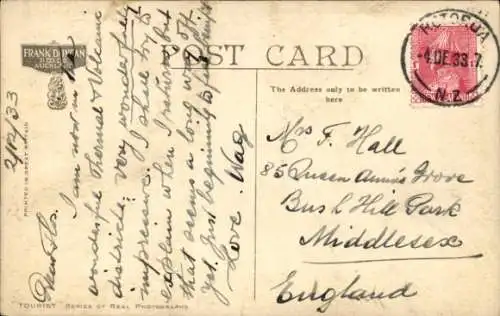 FRANK DUNCAN
& CO. LTD.
AUCKLAND
POST CARD
The Address only to be written
here
ROTORUA
4 DE 33 . 7.
N.Z.
PRINTED IN GREAT BRITAIN
TOURIST SERIES OF REAL PHOTOGRAPHS
2/12/33
Dear Flo.
I am now in the
wonderful Thermal & Volcanic
districts. Very wonderful &
impressive. I shall try to
explain when I return but
that seems a long way off
yet. Just beginning to feel
Love. Wag
Mrs F. Hall
85 Queen Anne's Grove
Bush Hill Park
Middlesex
England